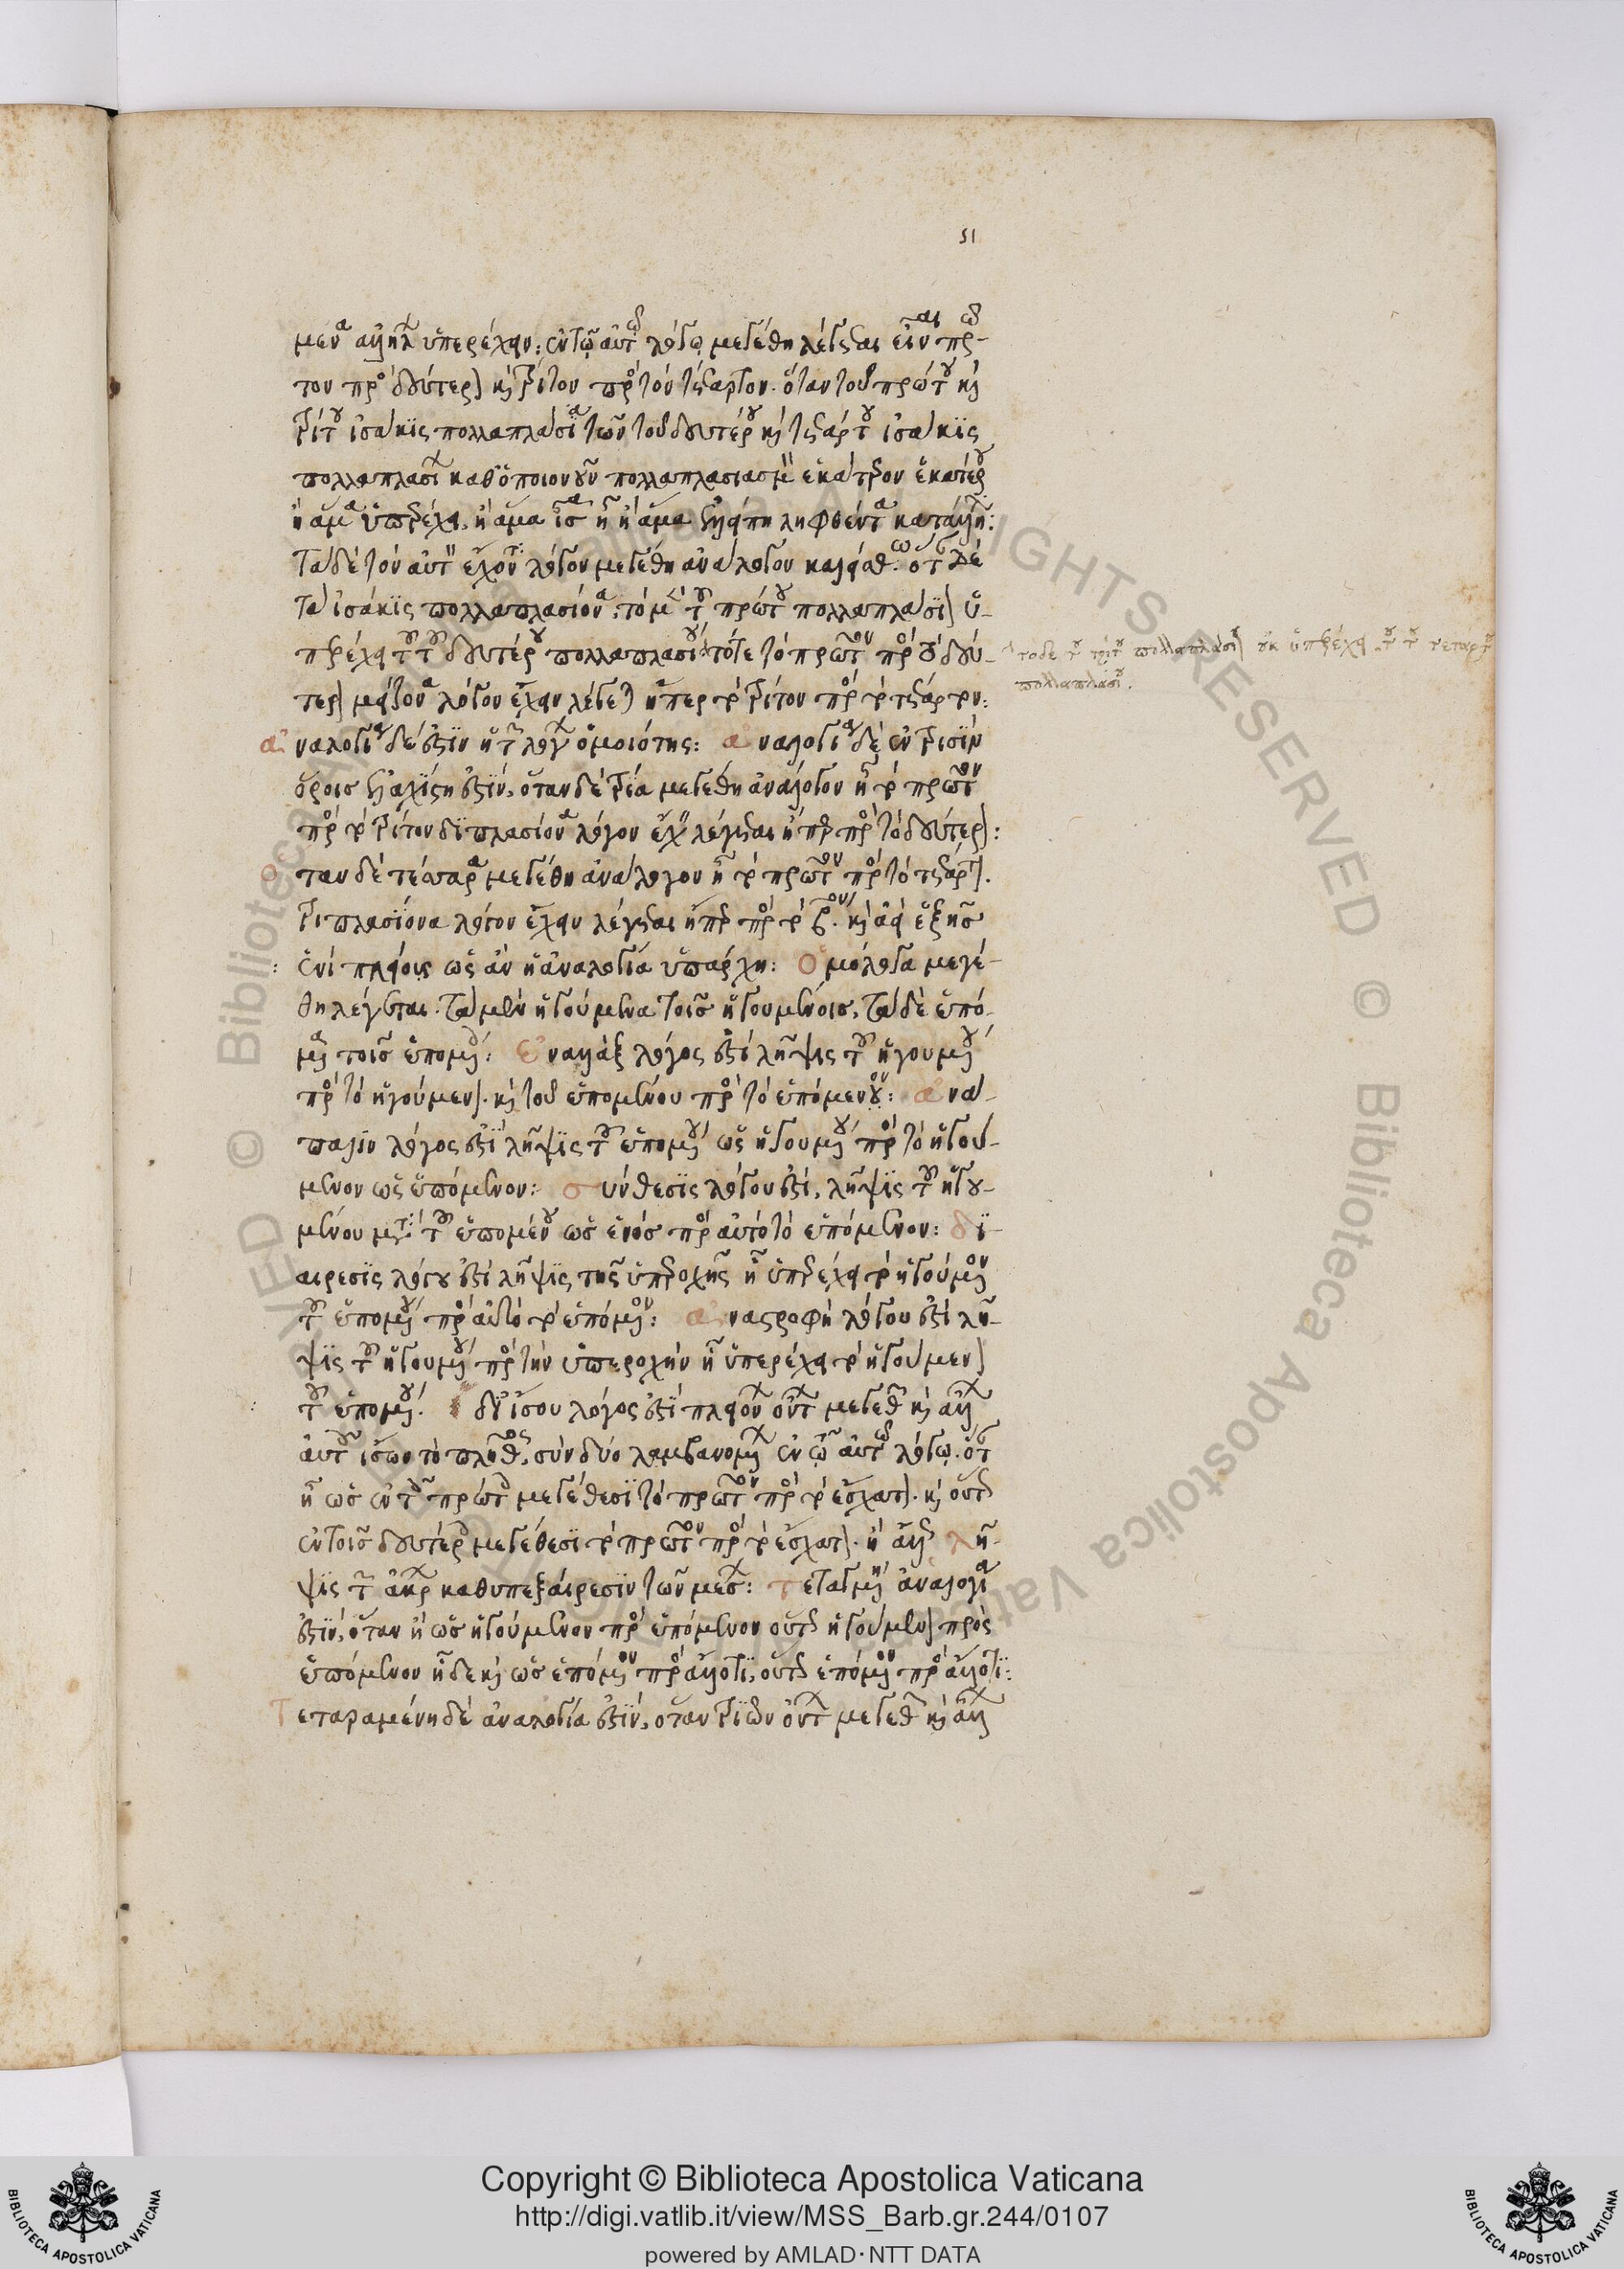 51
μενα ἀλλήλων ὑπερέχειν: ἐν τῷ αὐτῷ λόγῳ μεγέθη λέγεσθαι εἶναι πρῶ-
τον πρὸς δεύτερον καὶ τρίτον πρὸς τὸν τέταρτον. ὅταν τοῦ πρώτου καὶ
τρίτου ἰσάκις πολλαπλάσια τῶν τοῦ δευτέρου καὶ τετάρτου ἰσάκις
πολλαπλασίων καθ' ὁποιονοῦν πολλαπλασιασμὸν ἑκάτερον ἑκατέρου
ἢ ἅμα ὑπερέχει, ἢ ἅμα ἴσα ᾖ ἢ ἅμα ἐλλείπῃ ληφθέντα κατάλληλα:
τὰ δὲ τὸν αὐτὸν ἔχοντα λόγον μεγέθη ἀνάλογον καλείσθω. ὅταν δὲ
τὰ ἰσάκις πολλαπλασίονα, τὸ μὲν τοῦ πρώτου πολλαπλάσιον ὑ-
περέχει τοῦ τοῦ δευτέρου πολλαπλασίου τότε τὸ πρῶτον πρὸς τὸ δεύ-
τὸ δὲ τοῦ τρίτου πολλαπλάσιον οὐκ ὑπερέχει τοῦ τοῦ τετάρτου
πολλαπλασίου.
τερον μείζονα λόγον ἔχειν λέγεται ἤπερ τὸ τρίτον πρὸς τὸ τέταρτον:
ἀναλογία δέ ἐστιν ἡ τῶν λόγων ὁμοιότης: ἀναλογία δὲ ἐν τρισὶν
ὅροις ἐλαχίστη ἐστίν, ὅταν δὲ τρία μεγέθη ἀνάλογον ᾖ τὸ πρῶτον
πρὸς τὸ τρίτον διπλασίονα λόγον ἔχειν λέγεσθαι ἤπερ πρὸς τὸ δεύτερον:
ὅταν δὲ τέσσαρα μεγέθη ἀνάλογον ᾖ τὸ πρῶτον πρὸς τὸ τέταρτον.
τριπλασίονα λόγον ἔχειν λέγεσθαι ἤπερ πρὸς τὸ βον. καὶ ἀεὶ ἑξῆς
: ἑνὶ πλείους ὡς ἂν ἡ ἀναλογία ὑπάρχῃ: Ὁμόλογα μεγέ-
θη λέγεται. τὰ μὲν ἡγούμενα τοῖς ἡγουμένοις, τὰ δὲ ἑπό-
μενα τοῖς ἑπομένοις: ἐναλλὰξ λόγος ἐστὶ λῆψις τοῦ ἡγουμένου
πρὸς τὸ ἡγούμενον. καὶ τοῦ ἑπομένου πρὸς τὸ ἑπόμενον: ἀνά-
παλιν λόγος ἐστὶ λῆψις τοῦ ἑπομένου ὡς ἡγουμένου πρὸς τὸ ἡγού-
μενον ὡς ἑπόμενον: σύνθεσις λόγου ἐστὶ, λῆψις τοῦ ἡγου-
μένου μετὰ τοῦ ἑπομένου ὡς ἑνὸς πρὸς αὐτὸ τὸ ἑπόμενον: δι-
αίρεσις λόγου ἐστὶ λῆψις τῆς ὑπεροχῆς ᾗ ὑπερέχει τὸ ἡγούμενον
τοῦ ἑπομένου πρὸς αὐτὸ τὸ ἑπόμενον: ἀναστροφὴ λόγου ἐστὶ λῆ-
ψις τοῦ ἡγουμένου πρὸς τὴν ὑπεροχὴν ᾗ ὑπερέχει τὸ ἡγούμενον
: τοῦ ἑπομένου. δι' ἴσου λόγος ἐστὶ πλειόνων ὄντων μεγεθῶν καὶ ἄλλων
αὐτοῖς ἴσων τὸ πλῆθος, σύνδυο λαμβανομένων ἐν ᾧ αὐτῷ λόγῳ. ὅταν
ᾖ ὡς ἐν τοῖς πρώτοις μεγέθεσι τὸ πρῶτον πρὸς τὸ ἔσχατον. καὶ οὕτως
ἐν τοῖς δευτέροις μεγέθεσι τὸ πρῶτον πρὸς τὸ ἔσχατον. ἢ ἄλλως λῆ-
ψις τῶν ἄκρων καθυπεξαίρεσιν τῶν μέσων: τεταγμένη ἀναλογία
ἐστίν, ὅταν ᾖ ὡς ἡγούμενον πρὸς ἑπόμενον οὕτως ἡγούμενον πρὸς
ἑπόμενον ᾖ δὲ καὶ ὡς ἑπόμενον πρὸς ἄλλο τι, οὕτως ἑπόμενον πρὸς ἄλλο τι:
Τεταραμένη δὲ ἀναλογία ἐστίν, ὅταν τριῶν ὄντων μεγεθῶν καὶ ἄλλων
Copyright © Biblioteca Apostolica Vaticana
http://digi.vatlib.it/view/MSS_Barb.gr.244/0107
powered by AMLAD·NTT DATA
BIBLIOTECA APOSTOLICA VATICANA
BIBLIOTECA APOSTOLICA VATICANA